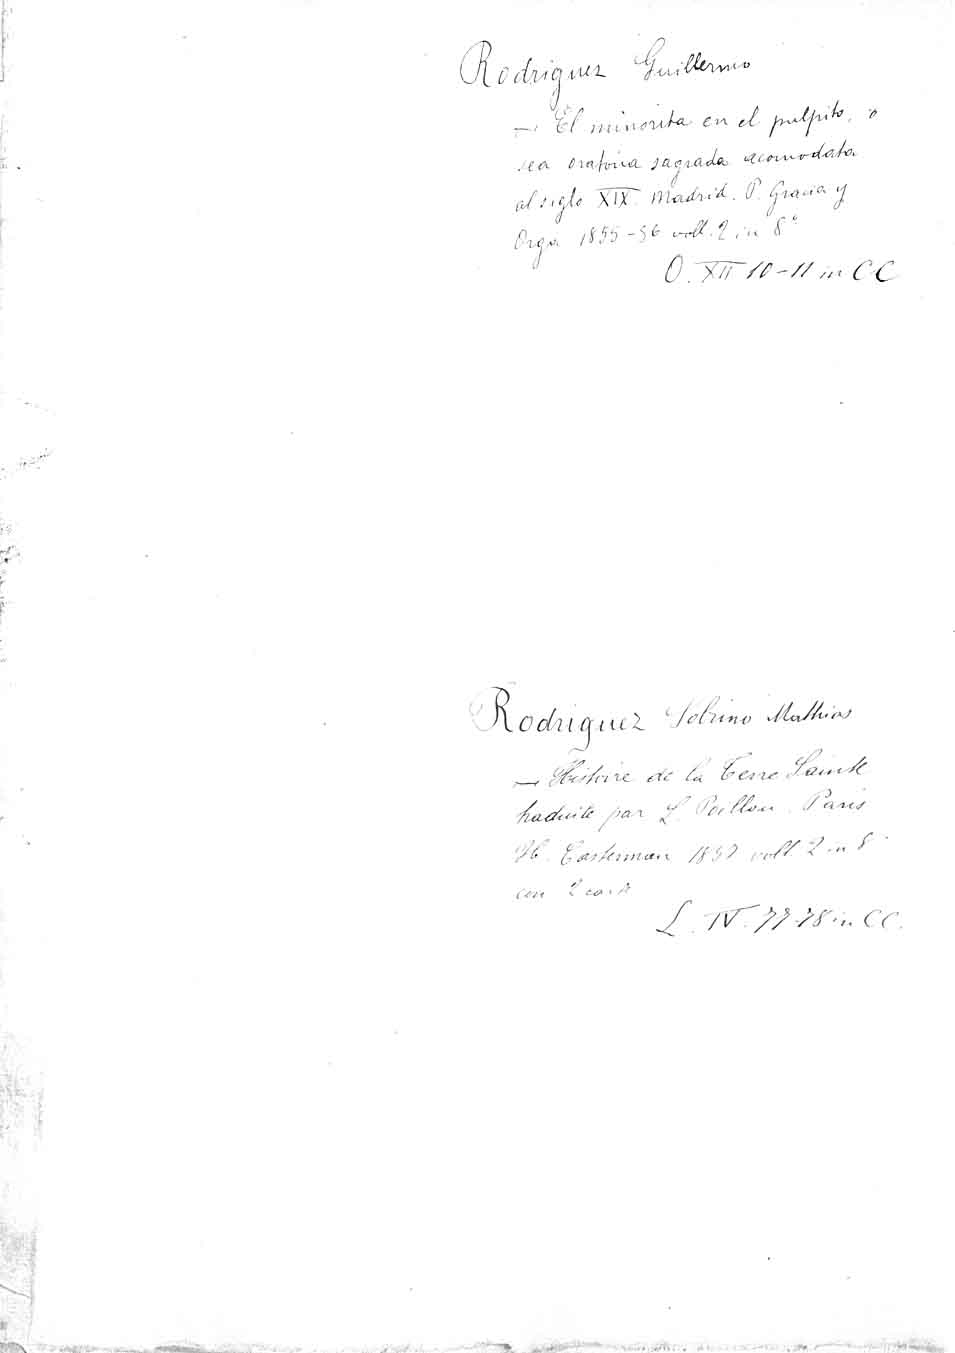 Rodriguez Guillermo
— El minorita en el pulpito, o
sea oratoria sagrada acomodata
al siglo XIX. Madrid. P. Gracia y
Orga 1855-56 voll. 2 in 8°
O. XII 10-11 in CC
Rodriguez Sobrino Mathias
— Histoire de la Terre Sainte
traduite par L. Poillon. Paris
H. Casterman 1857 voll 2 in 8°
con 2 carte
L. IV. 77-78 in CC.